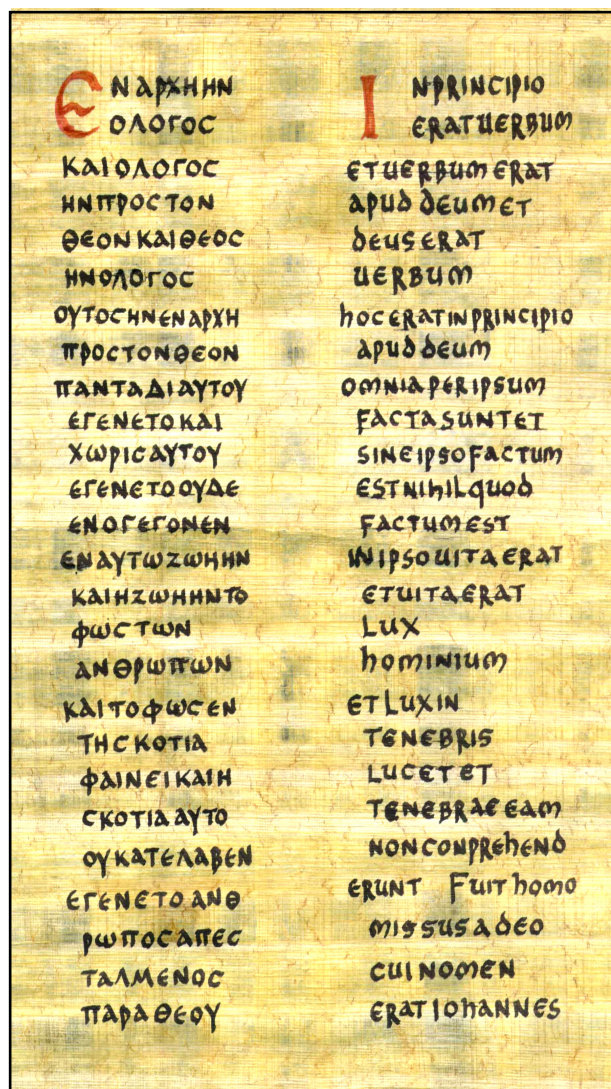 ΕΝΑΡΧΗΗΝ
ΟΛΟΓΟΣ
ΚΑΙΟΛΟΓΟΣ
ΗΝΠΡΟΣΤΟΝ
ΘΕΟΝΚΑΙΘΕΟΣ
ΗΝΟΛΟΓΟΣ
ΟΥΤΟΣΗΝΕΝΑΡΧΗ
ΠΡΟΣΤΟΝΘΕΟΝ
ΠΑΝΤΑΔΙΑΥΤΟΥ
ΕΓΕΝΕΤΟΚΑΙ
ΧΩΡΙΣΑΥΤΟΥ
ΕΓΕΝΕΤΟΟΥΔΕ
ΕΝΟΓΕΓΟΝΕΝ
ΕΝΑΥΤΩΖΩΗΗΝ
ΚΑΙΗΖΩΗΗΝΤΟ
ΦΩΣΤΩΝ
ΑΝΘΡΩΠΩΝ
ΚΑΙΤΟΦΩΣΕΝ
ΤΗΣΚΟΤΙΑ
ΦΑΙΝΕΙΚΑΙΗ
ΣΚΟΤΙΑΑΥΤΟ
ΟΥΚΑΤΕΛΑΒΕΝ
ΕΓΕΝΕΤΟΑΝΘ
ΡΩΠΟΣΑΠΕΣ
ΤΑΛΜΕΝΟΣ
ΠΑΡΑΘΕΟΥ
INPRINCIPIO
ERATUERBUM
ETUERBUMERAT
APUDDEUMET
DEUSERAT
UERBUM
hOCERATINPRINCIPIO
APUDDEUM
OMNIAPERIPSUM
FACTASUNTET
SINEIPSOFACTUM
ESTNIhILQUOD
FACTUMEST
INIPSOUITAERAT
ETUITAERAT
LUX
hOMINIUM
ETLUXIN
TENEBRIS
LUCETET
TENEBRAEEAM
NONCONPREhEND
ERUNT FUIT hOMO
MISSUSADEO
CUINOMEN
ERATIOhANNES